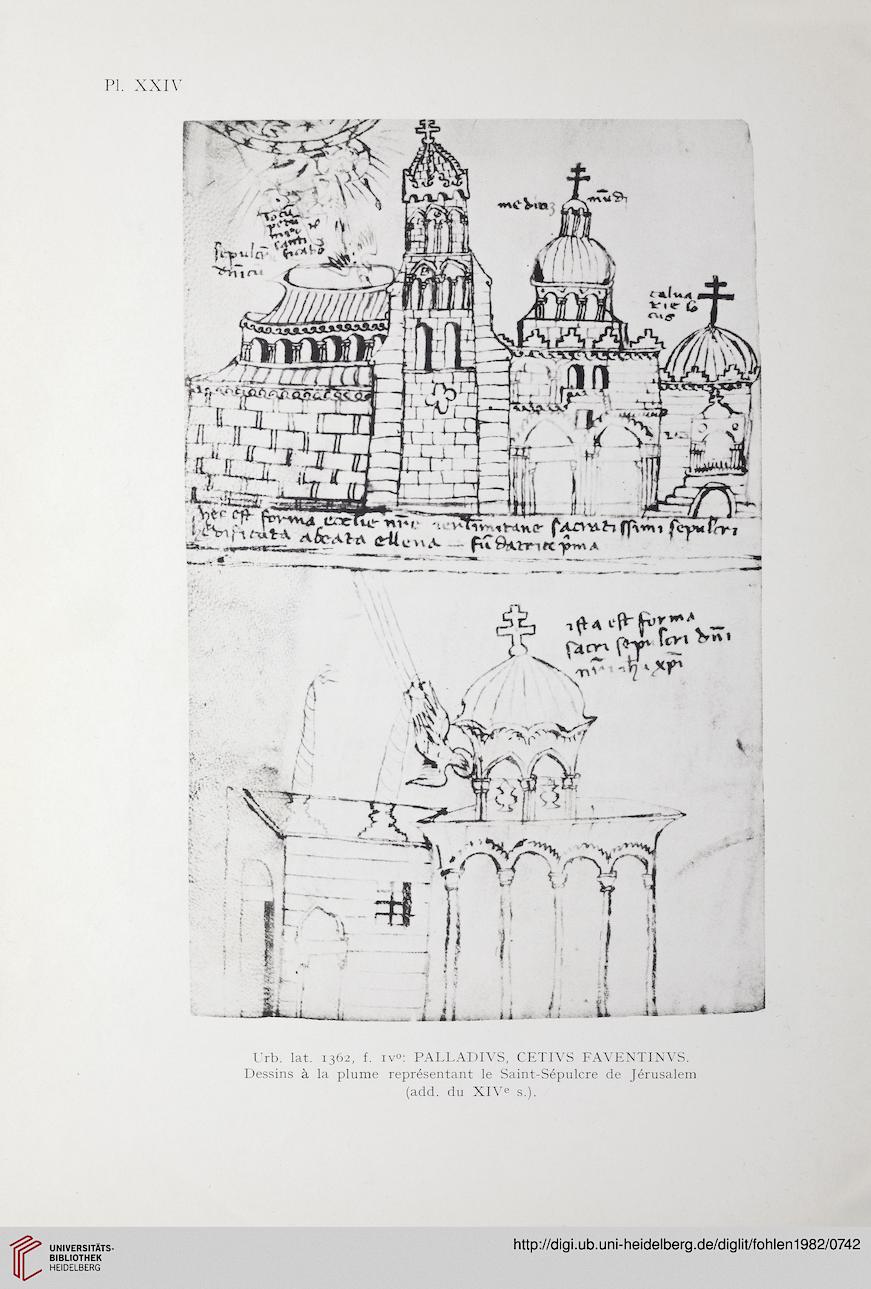 Pl. XXIV
mediuʒ mūdi
sepulcr
calua
rie lo
cus
hec est forma eccl'ie nr̄e sacratissimi sepulcri
hedificata abeata ellena — fūdatrice p̂ma
ista est forma
sacri sepulcri dn̄i
xp̄i
Urb. lat. 1362, f. IVº: PALLADIVS, CETIVS FAVENTINVS.
Dessins à la plume représentant le Saint-Sépulcre de Jérusalem
(add. du XIVᵉ s.).
UNIVERSITÄTS-
BIBLIOTHEK
HEIDELBERG
http://digi.ub.uni-heidelberg.de/diglit/fohlen1982/0742